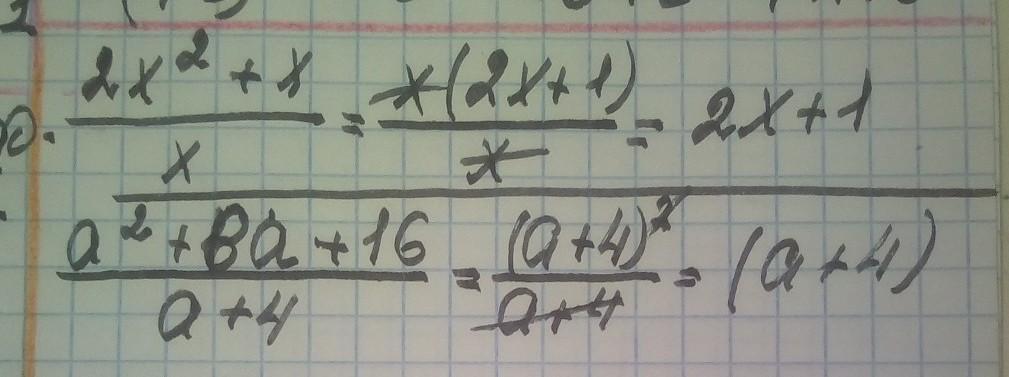 (2x² + x)/x = x(2x+1)/x = 2x+1
(a² + 8a + 16)/(a + 4) = (a+4)²/(a+4) = (a+4)